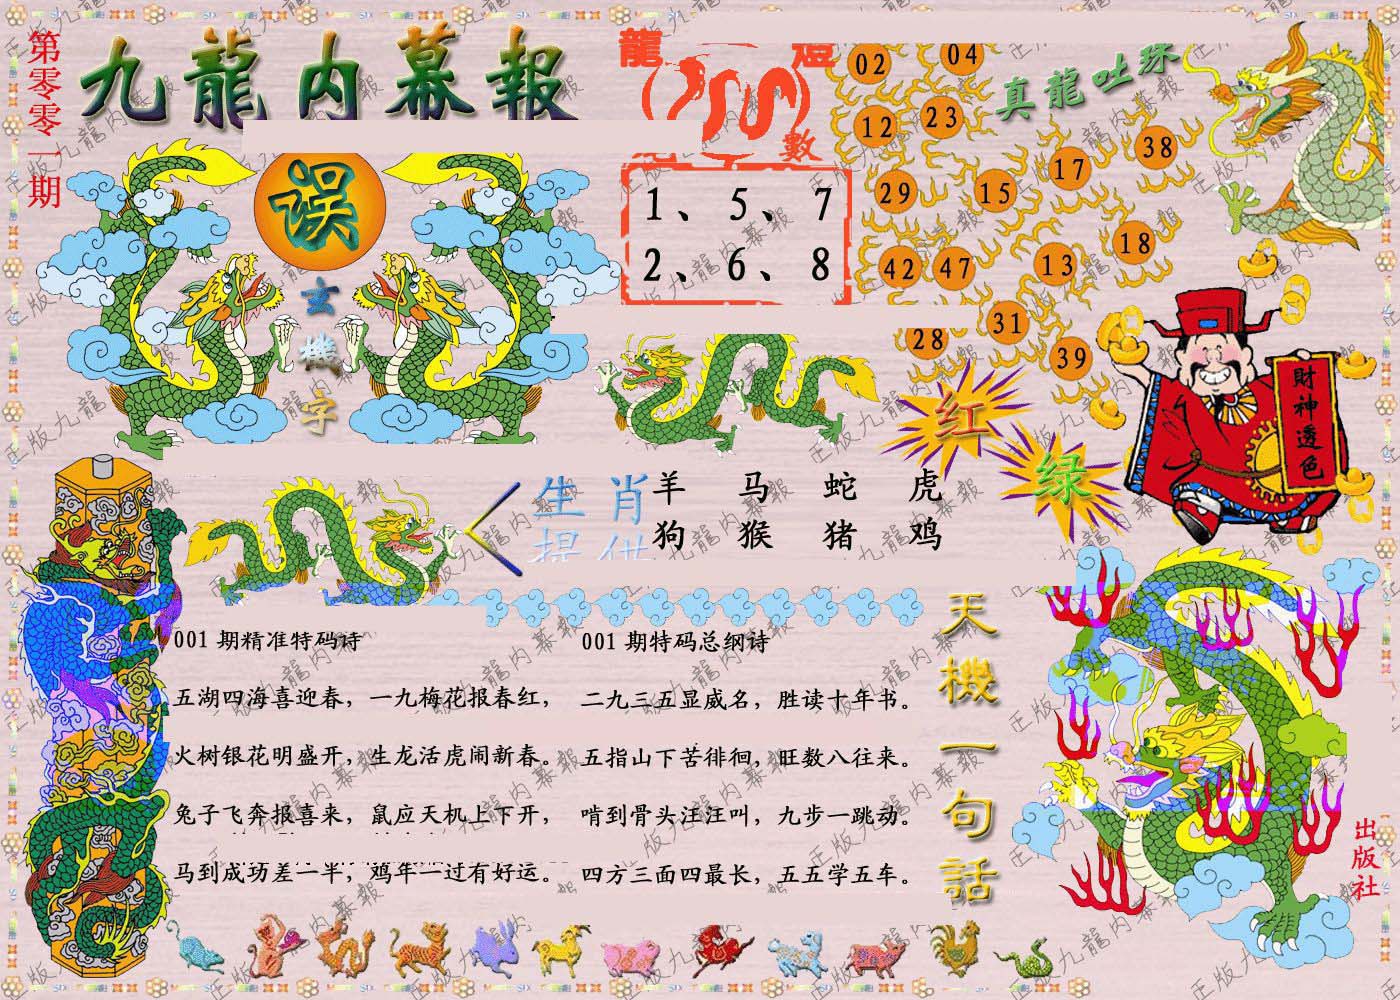 第零零一期
九龍内幕報
误
玄機字
龍
燈
數
1、5、7
2、6、8
02 04
12 23
真龍吐珠
38
17
29 15
18
42 47 13
28 31
39
红
绿
財神透色
生肖
提供
羊 马 蛇 虎
狗 猴 猪 鸡
001 期精准特码诗
五湖四海喜迎春，一九梅花报春红，
火树银花明盛开，生龙活虎闹新春。
兔子飞奔报喜来，鼠应天机上下开，
马到成功差一半，鸡年一过有好运。
001 期特码总纲诗
二九三五显威名，胜读十年书。
五指山下苦徘徊，旺数八往来。
啃到骨头汪汪叫，九步一跳动。
四方三面四最长，五五学五车。
天機一句話
出版社
正版九龍内幕報